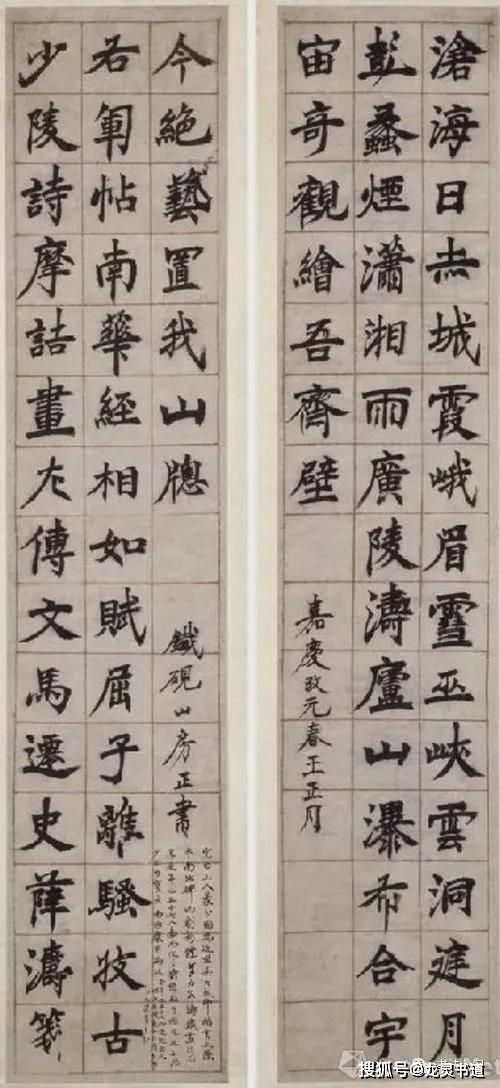 滄海日赤城霞峨眉雪巫峽雲洞庭月
彭蠡煙瀟湘雨廣陵濤廬山瀑布合宇
宙奇觀繪吾齊壁
嘉慶改元春王正月
少陵詩摩詰畫左傳文馬遷史薛濤箋
右軍帖南華經相如賦屈子離騷收古
今絕藝置我山牕
鐵硯山房正書
搜狐号@龙灵书道